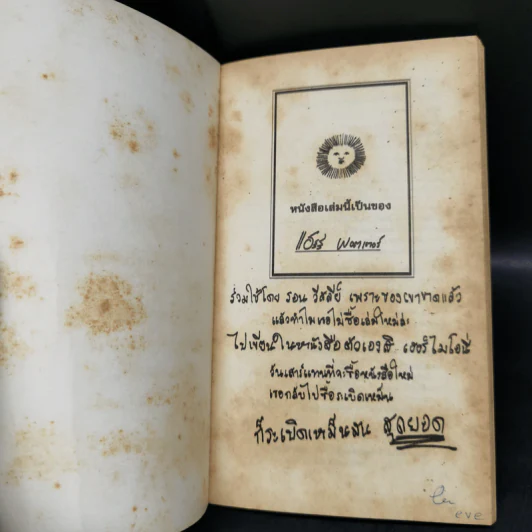 หนังสือเล่มนี้เป็นของ
แฮร์รี่ พอตเตอร์
ร่วมใช้โดย รอน วีสลีย์ เพราะของเขาขาดแล้ว
แล้วทำไมเธอไม่ซื้อเล่มใหม่ล่ะ
ไปเขียนในหนังสือตัวเองสิ เฮอร์ไมโอนี่
วันเสาร์แทนที่จะซื้อหนังสือใหม่
เธอกลับไปซื้อระเบิดเหม็น
ก็ระเบิดเหม็นมัน สุดยอด
eve